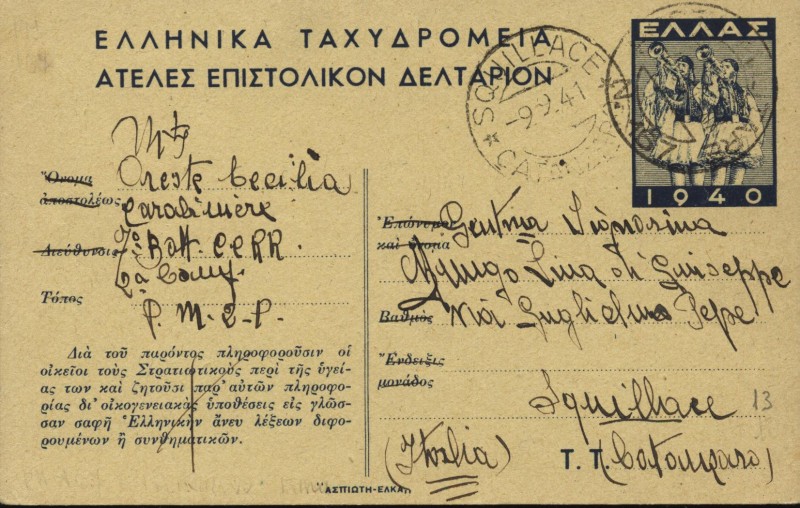 ΕΛΛΗΝΙΚΑ ΤΑΧΥΔΡΟΜΕΙΑ
ΑΤΕΛΕΣ ΕΠΙΣΤΟΛΙΚΟΝ ΔΕΛΤΑΡΙΟΝ
ΕΛΛΑΣ
1940
SQUILLACE
-9.9.41
Ὄνομα
ἀποστολέως
Oreste Cecilia
Carabiniere
Διεύθυνσις
7° Batt. CC.RR.
2ª Comp.
Τόπος
P. M. 2-P.
Διὰ τοῦ παρόντος πληροφοροῦσιν οἱ
οἰκεῖοι τοὺς Στρατιωτικοὺς περὶ τῆς ὑγεί-
ας των καὶ ζητοῦσι παρ' αὐτῶν πληροφο-
ρίας δι' οἰκογενειακὰς ὑποθέσεις εἰς γλῶσ-
σαν σαφῆ Ἑλληνικὴν ἄνευ λέξεων διφο-
ρουμένων ἢ συνθηματικῶν.
Ἐπώνυμον
καὶ ὄνομα
Gentma Signorina
Lina di Guiseppe
Βαθμὸς
Viai Guglielmo Pepe
Ἔνδειξις
μονάδος
Squillace
13
(Italia)
Τ. Τ. (Catanzaro)
"ΑΣΠΙΩΤΗ-ΕΛΚΑ"